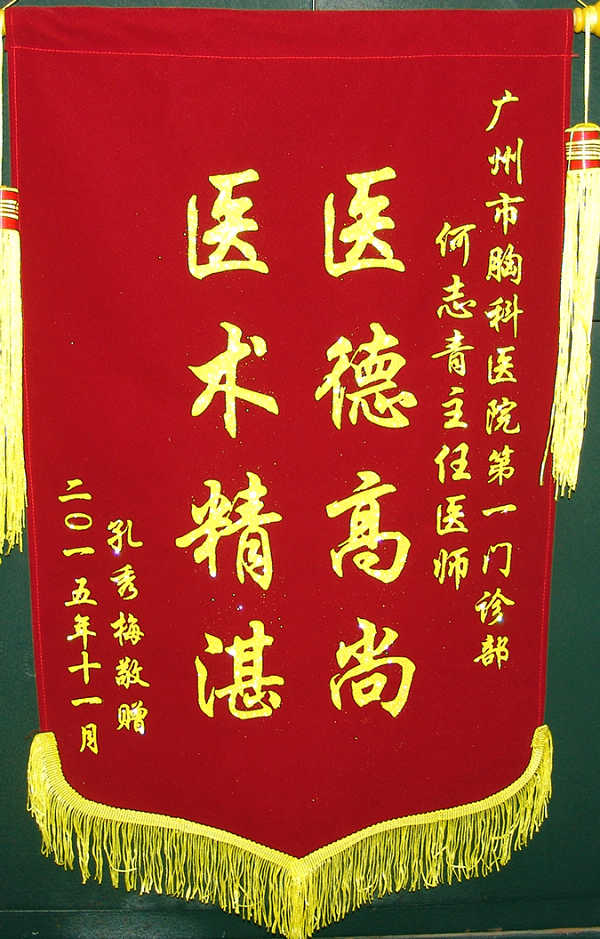 广州市胸科医院第一门诊部
何志青主任医师
医德高尚
医术精湛
孔秀梅敬赠
二〇一五年十一月